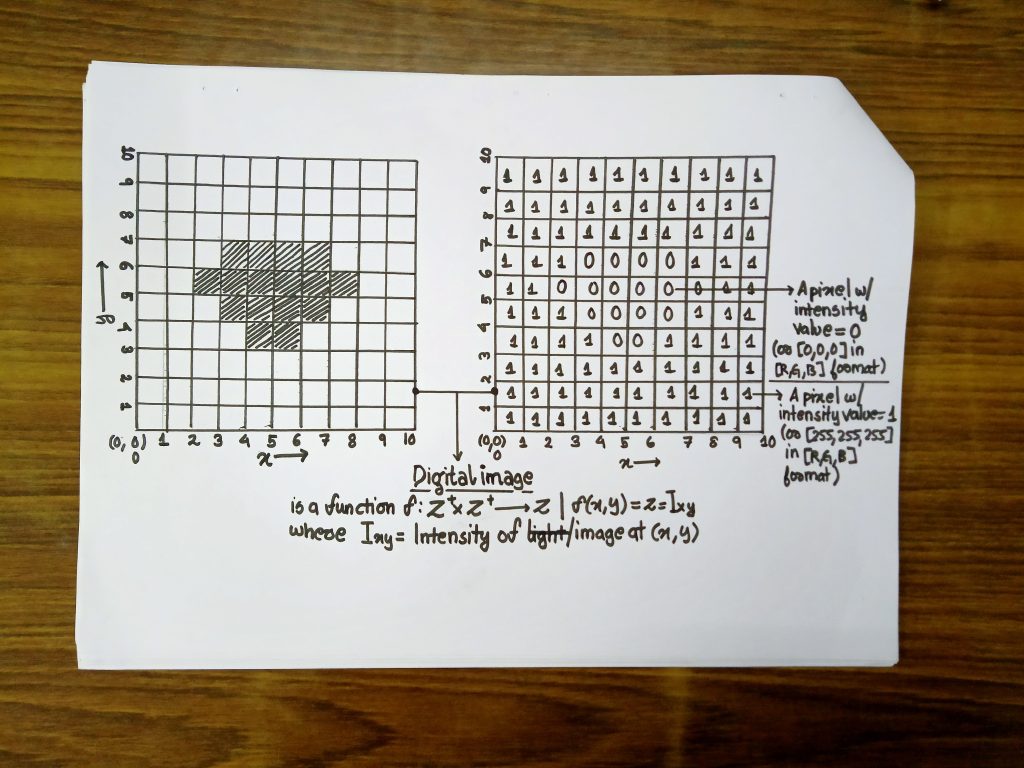 10
9
8
7
6
5
4
3
2
1
y
(0,0) 1 2 3 4 5 6 7 8 9 10
0
x
10
9
8
7
6
5
4
3
2
1
1 1 1 1 1 1 1 1 1 1
1 1 1 1 1 1 1 1 1 1
1 1 1 1 1 1 1 1 1 1
1 1 1 0 0 0 0 1 1 1
1 1 0 0 0 0 0 0 1 1
1 1 1 0 0 0 0 1 1 1
1 1 1 1 0 0 1 1 1 1
1 1 1 1 1 1 1 1 1 1
1 1 1 1 1 1 1 1 1 1
1 1 1 1 1 1 1 1 1 1
(0,0) 1 2 3 4 5 6 7 8 9 10
0
x →
A pixel w/
intensity
value = 0
(or [0,0,0] in
[R,G,B] format)
A pixel w/
intensity value = 1
(or [255,255,255]
in [R,G,B]
format)
Digital image
is a function f: Z⁺ × Z⁺ → Z | f(x,y) = z = Ixy
where Ixy = Intensity of light/image at (x,y)